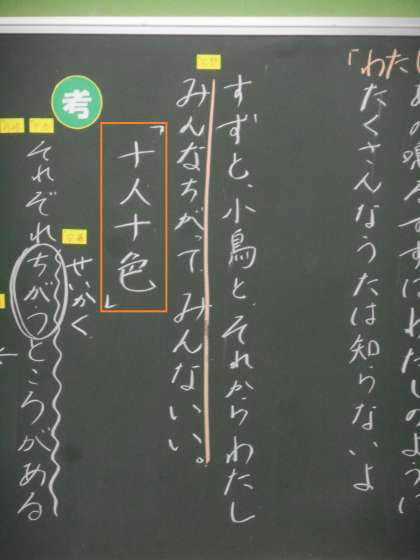 「わたし
あの鳴るすずはわたしのように
たくさんなうたは知らないよ
すずと、小鳥と、それからわたし
みんなちがって、みんないい。
「十人十色」
考
せいかく
それぞれちがうところがある